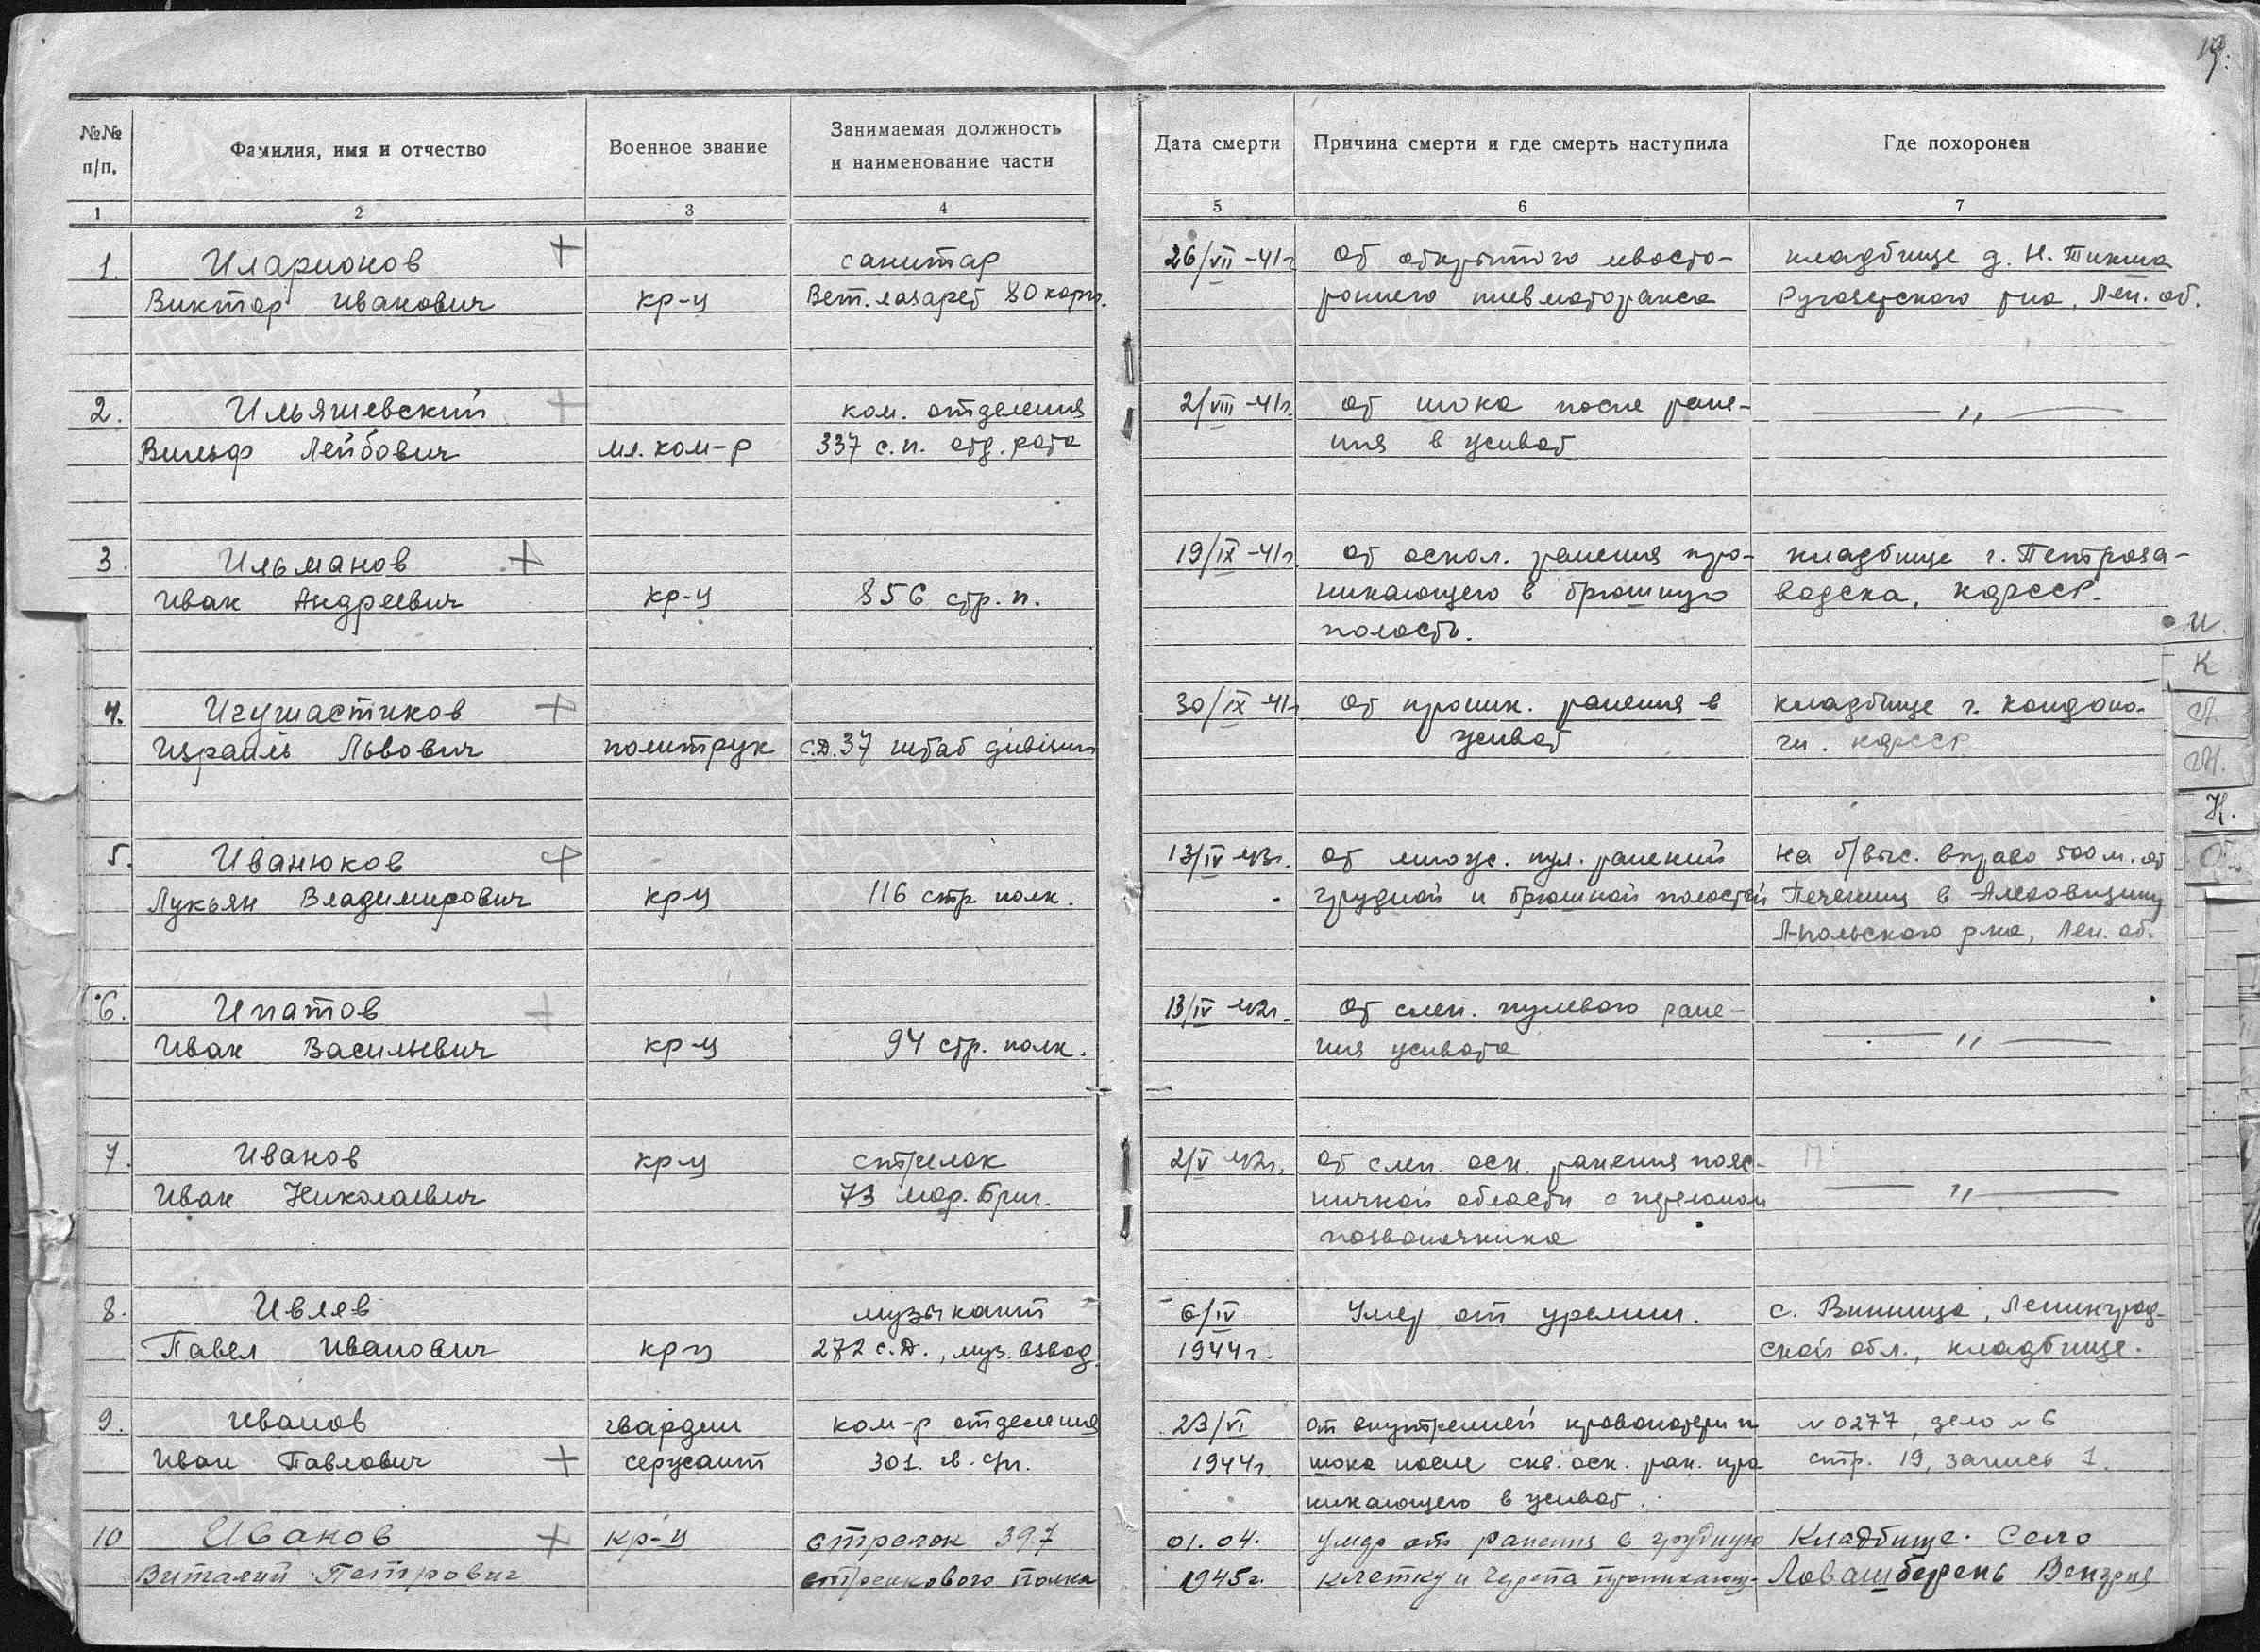 19.
№№ п/п.
Фамилия, имя и отчество
Военное звание
Занимаемая должность
и наименование части
Дата смерти
Причина смерти и где смерть наступила
Где похоронен
1 2 3 4 5 6 7
1. Иларионов + санитар 26/VII-41г От открытого двосто- кладбище д. Н. Тикша
Виктор Иванович кр-ц Вет. лазарет 80 корп. роннего пневмоторакса Ругозерского р-на, Лен. об.
2. Ильяшевский + ком. отделения 2/VIII-41г. от шока после ране- — " —
Вильф Лейбович мл. ком-р 337 с.п. отд. рота ния в живот
3. Ильманов + 19/IX-41г. от оскол. ранения про- кладбище г. Петроза-
Иван Андреевич кр-ц 856 стр. п. никающего в брюшную водска, КФССР.
полость.
4. Игушастиков + 30/IX-41г От проник. ранения в кладбище г. Кондопо-
Израиль Львович политрук С.Д. 37 штаб дивизии живот ги. КФССР
5. Иванюков + 13/IV 43г. От множ. пул. ранений На б/выс. вправо 500 м. от
Лукьян Владимирович кр-ц 116 стр полк. грудной и брюшной полостей Печениц в Алеховщину
Л-польского р-на, Лен. об.
6. Ипатов + 13/IV 42г. От слеп. пулевого ране- — " —
Иван Васильевич кр-ц 94 стр. полк. ния живота
7. Иванов кр-ц стрелок 2/V 42г. от слеп. оск. ранения пояс-
Иван Николаевич 73 мор. бриг. ничной области с переломом — " —
позвоночника
8. Ивлев музыкант 6/IV Умер от уремии. с. Винница, Ленинград-
Павел Иванович кр-ц 272 с.д., муз. взвод. 1944г. ской обл., кладбище.
9. Иванов гвардии ком-р отделения 23/VI от внутренней кровопотери и № 0277, дело № 6
Иван Павлович + сержант 301. гв. с/п. 1944г. шока после скв. оск. ран. про стр. 19, запись 1.
никающего в живот.
10 Иванов + кр-ц стрелок 397 01.04. Умер от ранения в грудную Кладбище. Село
Виталий Петрович стрелкового полка 1945г. клетку и черепа проникающ- Ловашберень Венгрия
И.
К
Л.
М.
Н.
О.